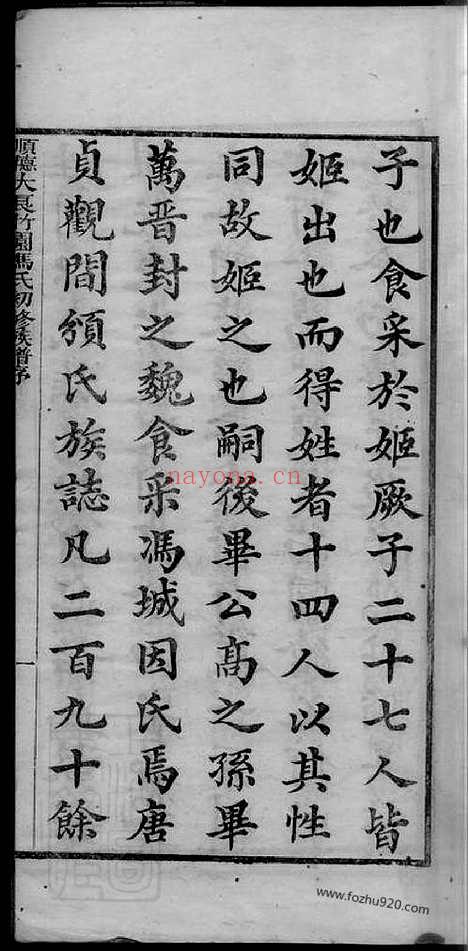 子也食采於姬厥子二十七人皆
姬出也而得姓者十四人以其性
同故姬之也嗣後畢公高之孫畢
萬晋封之魏食采馮城因氏焉唐
貞觀間頒氏族誌凡二百九十餘
順德大良竹園馮氏初修族譜序
一
nayona.cn
www.fozhu920.com